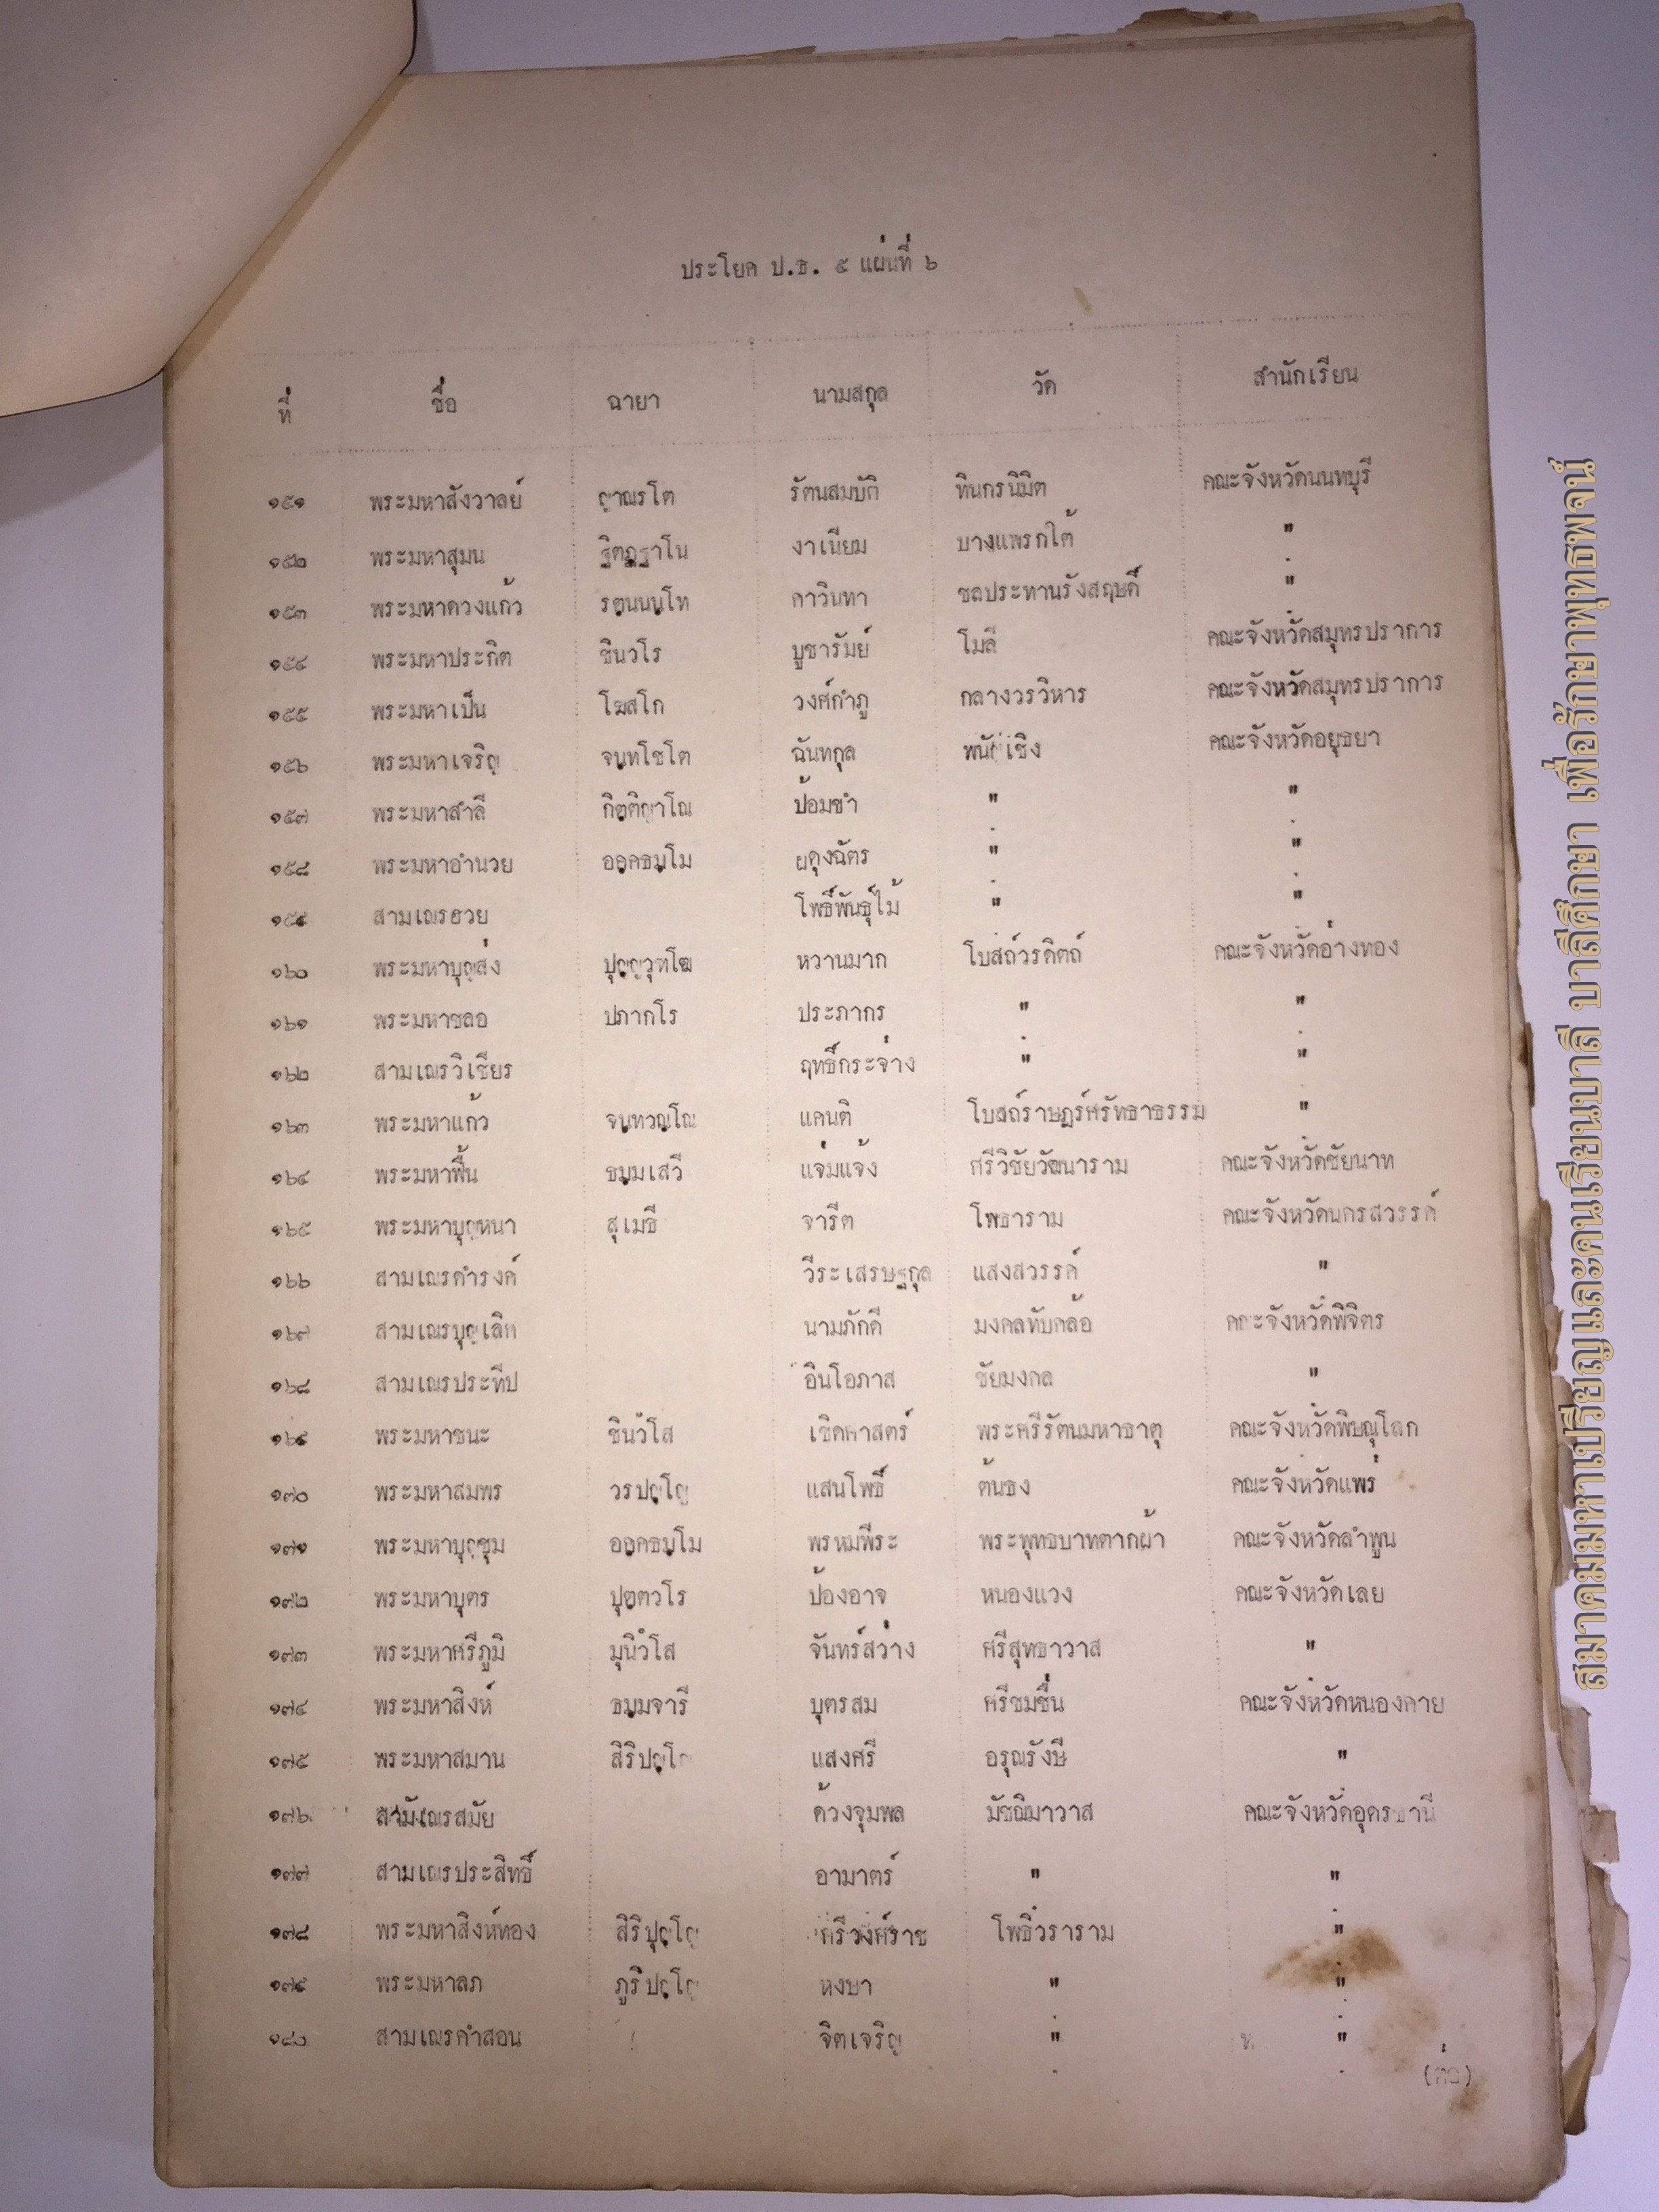 ประโยค ป.ธ. ๕ แผ่นที่ ๖
ที่ ชื่อ ฉายา นามสกุล วัด สำนักเรียน
๑๕๑ พระมหาสังวาลย์ ญาณรโต รัตนสมบัติ ทินกรนิมิต คณะจังหวัดนนทบุรี
๑๕๒ พระมหาสุมน ฐิตฏฺฐาโน งาเนียม บางแพรกใต้ "
๑๕๓ พระมหาดวงแก้ว รตนนนฺโท กาวินทา ชลประทานรังสฤษดิ์ "
๑๕๔ พระมหาประกิต ชินวโร บูชารัมย์ โมลี คณะจังหวัดสมุทรปราการ
๑๕๕ พระมหาเป็น โฆสโก วงศ์กำภู กลางวรวิหาร คณะจังหวัดสมุทรปราการ
๑๕๖ พระมหาเจริญ จนฺทโชโต ฉันทกุล พนัญเชิง คณะจังหวัดอยุธยา
๑๕๗ พระมหาสำลี กิตฺติญาโณ ป้อมขำ " "
๑๕๘ พระมหาอำนวย อคฺคธมฺโม ผดุงฉัตร " "
๑๕๙ สามเณรฮวย โพธิ์พันธุ์ไม้ " "
๑๖๐ พระมหาบุญส่ง ปุญฺญวุฑฺโฒ หวานมาก โบสถ์วรดิตถ์ คณะจังหวัดอ่างทอง
๑๖๑ พระมหาชลอ ปภากโร ประภากร " "
๑๖๒ สามเณรวิเชียร ฤทธิ์กระจ่าง " "
๑๖๓ พระมหาแก้ว จนฺทวณฺโณ แคนติ โบสถ์ราษฎร์ศรัทธาธรรม "
๑๖๔ พระมหาฟื้น ธมฺมเสวี แจ่มแจ้ง ศรีวิชัยวัฒนาราม คณะจังหวัดชัยนาท
๑๖๕ พระมหาบุญหนา สุเมธี จารีต โพธาราม คณะจังหวัดนครสวรรค์
๑๖๖ สามเณรดำรงค์ วีระเสรษฐกุล แสงสวรรค์ "
๑๖๗ สามเณรบุญเลิศ นามภักดี มงคลทับคล้อ คณะจังหวัดพิจิตร
๑๖๘ สามเณรประทีป อินโอภาส ชัยมงคล "
๑๖๙ พระมหาชนะ ชินวํโส เชิดศาสตร์ พระศรีรัตนมหาธาตุ คณะจังหวัดพิษณุโลก
๑๗๐ พระมหาสมพร วรปญฺโญ แสนโพธิ์ ต้นธง คณะจังหวัดแพร่
๑๗๑ พระมหาบุญชุม อคฺคธมฺโม พรหมพีระ พระพุทธบาทตากผ้า คณะจังหวัดลำพูน
๑๗๒ พระมหาบุตร ปุตฺตวโร ป้องอาจ หนองแวง คณะจังหวัดเลย
๑๗๓ พระมหาศรีภูมิ มุนิวํโส จันทร์สว่าง ศรีสุทธาวาส "
๑๗๔ พระมหาสิงห์ ธมฺมจารี บุตรสม ศรีชมชื่น คณะจังหวัดหนองคาย
๑๗๕ พระมหาสมาน สิริปญฺโญ แสงศรี อรุณรังษี "
๑๗๖ สามเณรสมัย ด้วงจุมพล มัชฌิมาวาส คณะจังหวัดอุดรธานี
๑๗๗ สามเณรประสิทธิ์ อามาตร์ " "
๑๗๘ พระมหาสิงห์ทอง สิริปุญฺโญ ศรีวงศ์ราช โพธิ์วราราม "
๑๗๙ พระมหาลภ ภูริปญฺโญ หงษา " "
๑๘๐ สามเณรคำสอน จิตเจริญ " "
(ต่อ)
สมาคมมหาเปรียญและคนเรียนบาลี บาลีศึกษา เพื่อรักษาพุทธพจน์